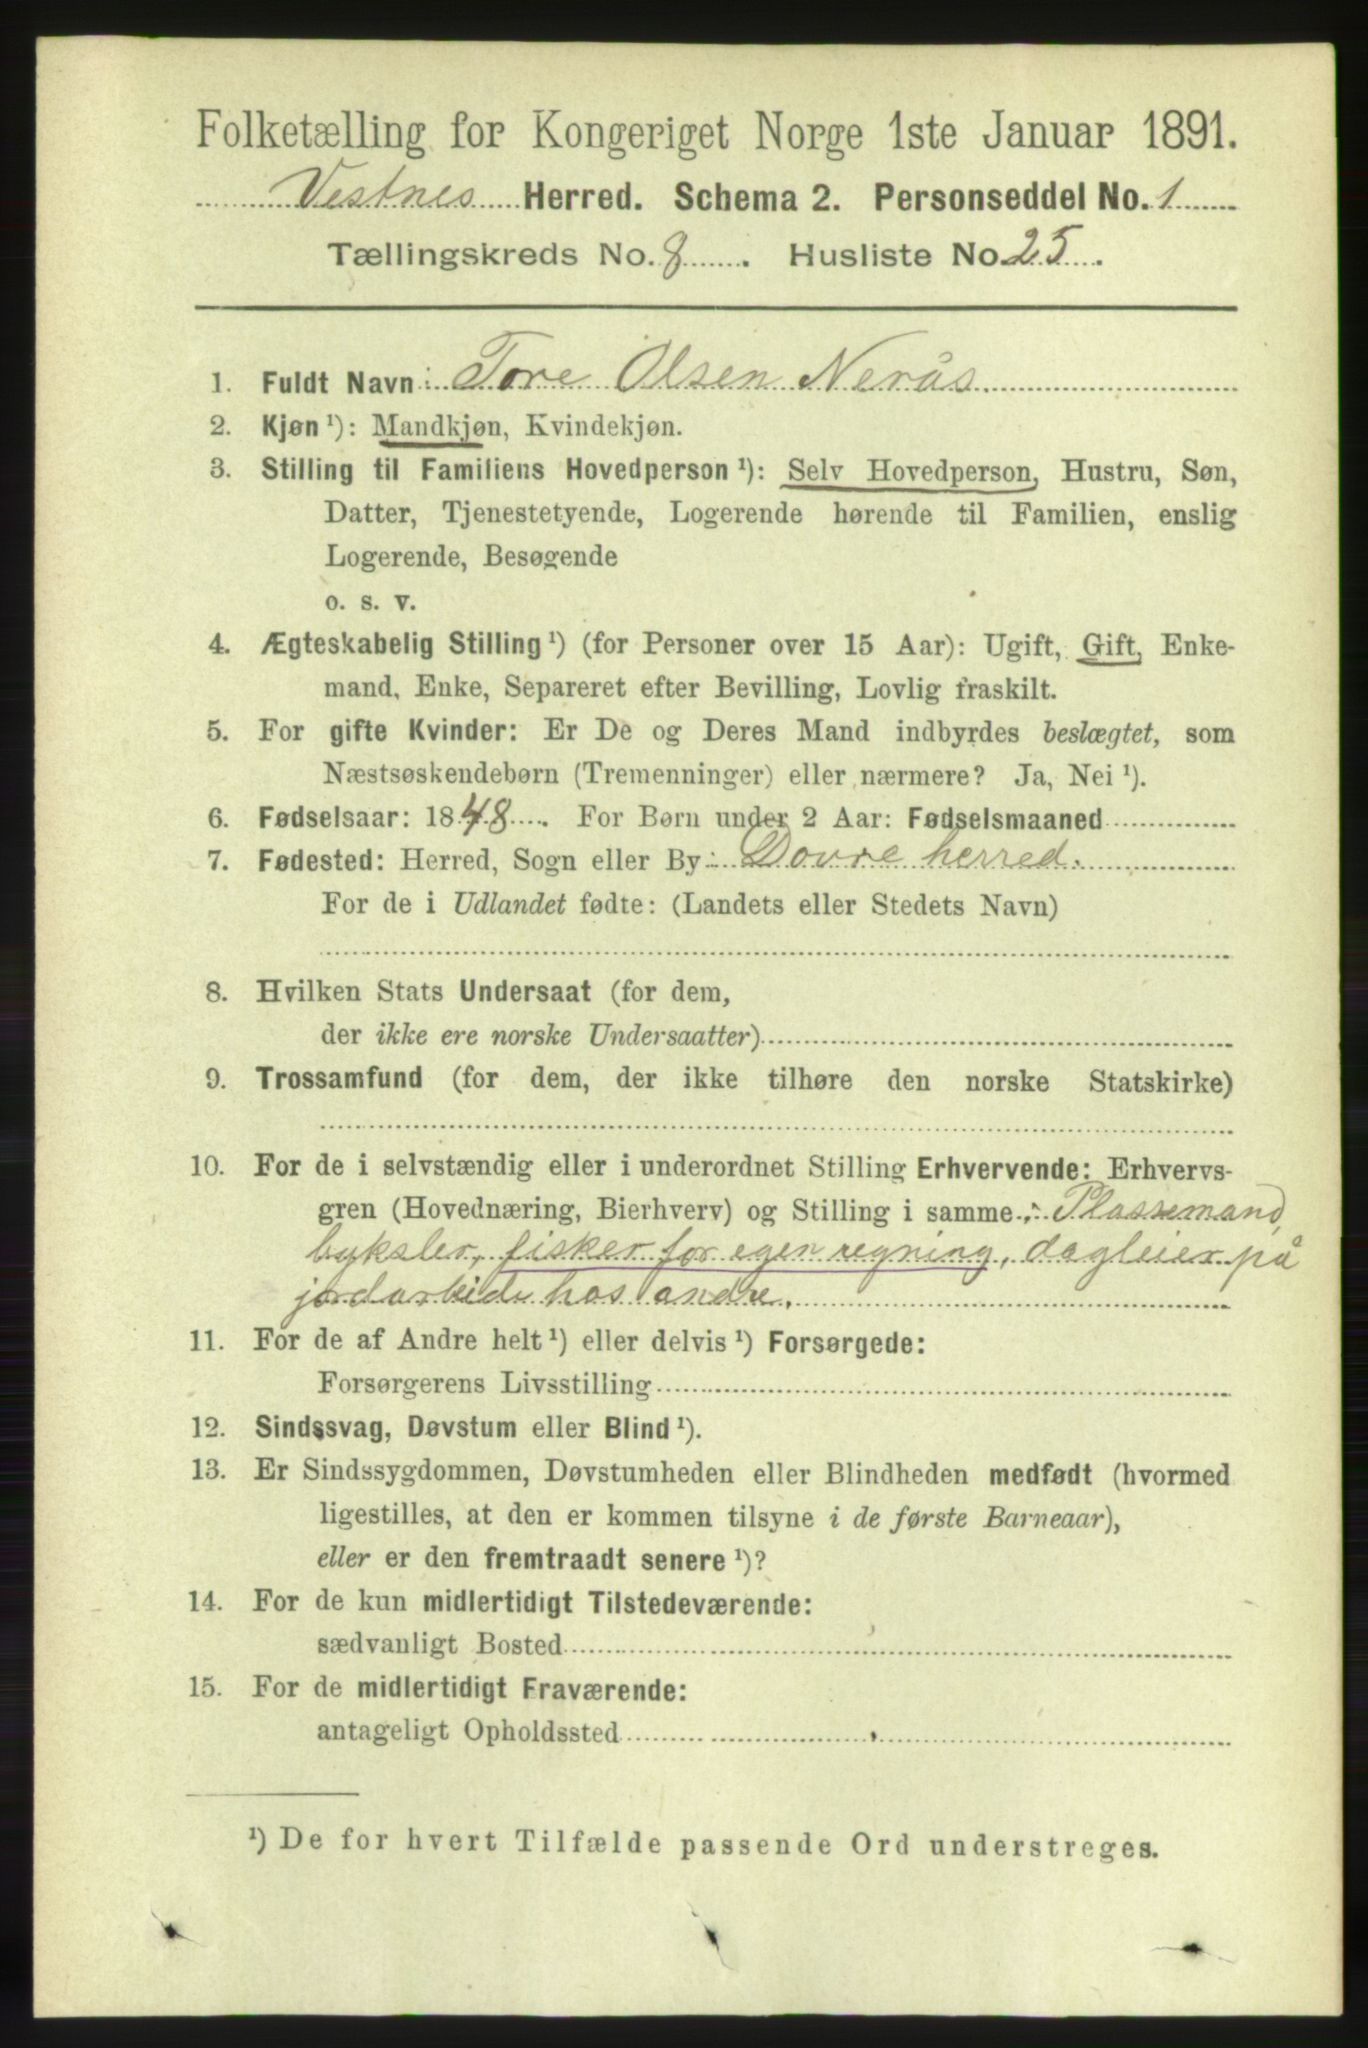 Folketælling for Kongeriget Norge 1ste Januar 1891.
Vestnes Herred. Schema 2. Personseddel No. 1
Tællingskreds No. 8. Husliste No. 25.
1. Fuldt Navn: Tore Olsen Nerås.
2. Kjøn ¹): Mandkjøn, Kvindekjøn.
3. Stilling til Familiens Hovedperson ¹): Selv Hovedperson, Hustru, Søn,
Datter, Tjenestetyende, Logerende hørende til Familien, enslig
Logerende, Besøgende
o. s. v.
4. Ægteskabelig Stilling ¹) (for Personer over 15 Aar): Ugift, Gift, Enke-
mand, Enke, Separeret efter Bevilling, Lovlig fraskilt.
5. For gifte Kvinder: Er De og Deres Mand indbyrdes beslægtet, som
Næstsøskendebørn (Tremenninger) eller nærmere? Ja, Nei ¹).
6. Fødselsaar: 1848. For Børn under 2 Aar: Fødselsmaaned
7. Fødested: Herred, Sogn eller By: Dovre herred.
For de i Udlandet fødte: (Landets eller Stedets Navn)
8. Hvilken Stats Undersaat (for dem,
der ikke ere norske Undersaatter)
9. Trossamfund (for dem, der ikke tilhøre den norske Statskirke)
10. For de i selvstændig eller i underordnet Stilling Erhvervende: Erhvervs-
gren (Hovednæring, Bierhverv) og Stilling i samme: Plassemand,
byksler, fisker for egen regning, dagleier på
jordarbeide hos andre.
11. For de af Andre helt ¹) eller delvis ¹) Forsørgede:
Forsørgerens Livsstilling
12. Sindssvag, Døvstum eller Blind ¹).
13. Er Sindssygdommen, Døvstumheden eller Blindheden medfødt (hvormed
ligestilles, at den er kommen tilsyne i de første Barneaar),
eller er den fremtraadt senere ¹)?
14. For de kun midlertidigt Tilstedeværende:
sædvanligt Bosted
15. For de midlertidigt Fraværende:
antageligt Opholdssted
¹) De for hvert Tilfælde passende Ord understreges.